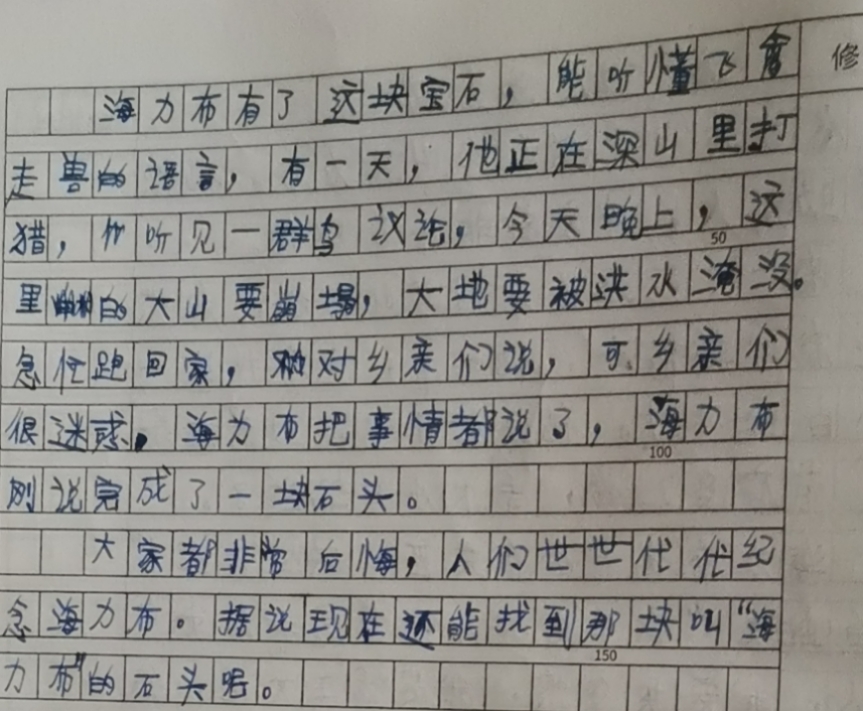 修
海力布有了这块宝石，能听懂飞禽
走兽的语言，有一天，他正在深山里打
猎，他听见一群鸟议论，今天晚上，这
50
里的大山要崩塌，大地要被洪水淹没。
急忙跑回家，对乡亲们说，可乡亲们
很迷惑。海力布把事情都说了，海力布
100
刚说完成了一块石头。
大家都非常后悔，人们世世代代纪
念海力布。据说现在还能找到那块叫“海
150
力布”的石头呢。